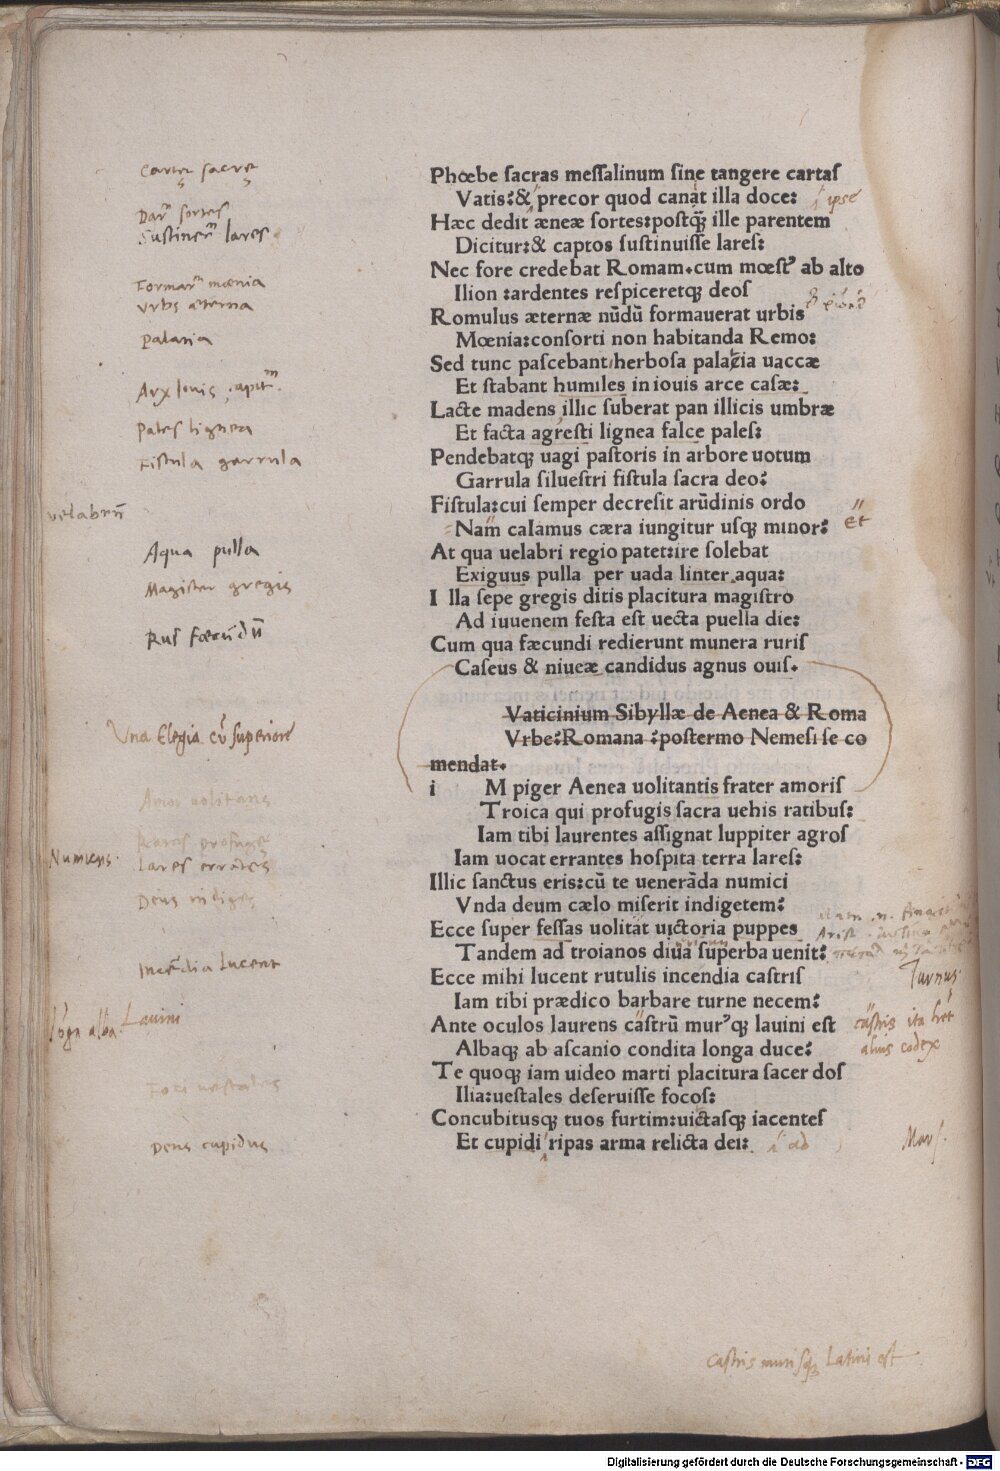 Phœbe ſacras meſſalinum ſine tangere cartaſ
Vatis:& precor quod canat illa doce:
ipse
Hæc dedit æneæ ſortes:poſtq̃ ille parentem
Dicitur:& captos ſuſtinuiſſe lareſ:
Nec fore credebat Romam.cum mœſtꝰ ab alto
Ilion :ardentes reſpiceretqꝫ deoſ
Romulus æternæ nūdū formauerat urbis
Mœnia:conſorti non habitanda Remo:
Sed tunc paſcebant herboſa palacia uaccæ
Et ſtabant humiles in iouis arce caſæ:
Lacte madens illic ſuberat pan illicis umbræ
Et facta agreſti lignea falce paleſ:
Pendebatqꝫ uagi paſtoris in arbore uotum
Garrula ſilueſtri fiſtula ſacra deo:
Fiſtula:cui ſemper decreſit arūdinis ordo
Nam calamus cæra iungitur uſqꝫ minor:
et
At qua uelabri regio patet:ire ſolebat
Exiguus pulla per uada linter aqua:
I lla ſepe gregis ditis placitura magiſtro
Ad iuuenem feſta eſt uecta puella die:
Cum qua fæcundi redierunt munera ruriſ
Caſeus & niueæ candidus agnus ouiſ.
Vaticinium Sibyllæ de Aenea & Roma
Vrbe:Romana :poſtermo Nemeſi ſe co
mendat.
i M piger Aenea uolitantis frater amoriſ
Troica qui profugiſ ſacra uehis ratibuſ:
Iam tibi laurentes aſſignat Iuppiter agroſ
Iam uocat errantes hoſpita terra lareſ:
Illic ſanctus eris:cū te uenerāda numici
Vnda deum cælo miſerit indigetem:
Ecce ſuper feſſas uolitat uictoria puppes
Tandem ad troianos diua ſuperba uenit:
Ecce mihi lucent rutulis incendia caſtriſ
Iam tibi prædico barbare turne necem:
Ante oculos laurens caſtrū murꝰqꝫ lauini eſt
Albaqꝫ ab aſcanio condita longa duce:
Te quoqꝫ iam uideo marti placitura ſacer doſ
Ilia:ueſtales deſeruiſſe focoſ:
Concubituſqꝫ tuos furtim:uictaſqꝫ iacenteſ
Et cupidi ripas arma relicta dei:
ad
Cartę sacrę
Darᵉ sortes
Sustinerᵉ lares
Formarᵉ mœnia
Vrbs æterna
Palatia
Arx Iouis
Pales lignea
Fistula garrula
velabrū
Aqua pulla
Magister gregis
Rus fœcūdū
Vna Elegia cū superiore
Amor uolitans
Numicus.
Lares errātes
Deus indiges
Incēdia Lucent
Lōga alba
Lauini
Foci uestales
Deus cupidus
Turnus
castris ita hēt
alius codex
Mars.
Castris murusqꝫ Latini est
Digitalisierung gefördert durch die Deutsche Forschungsgemeinschaft - DFG